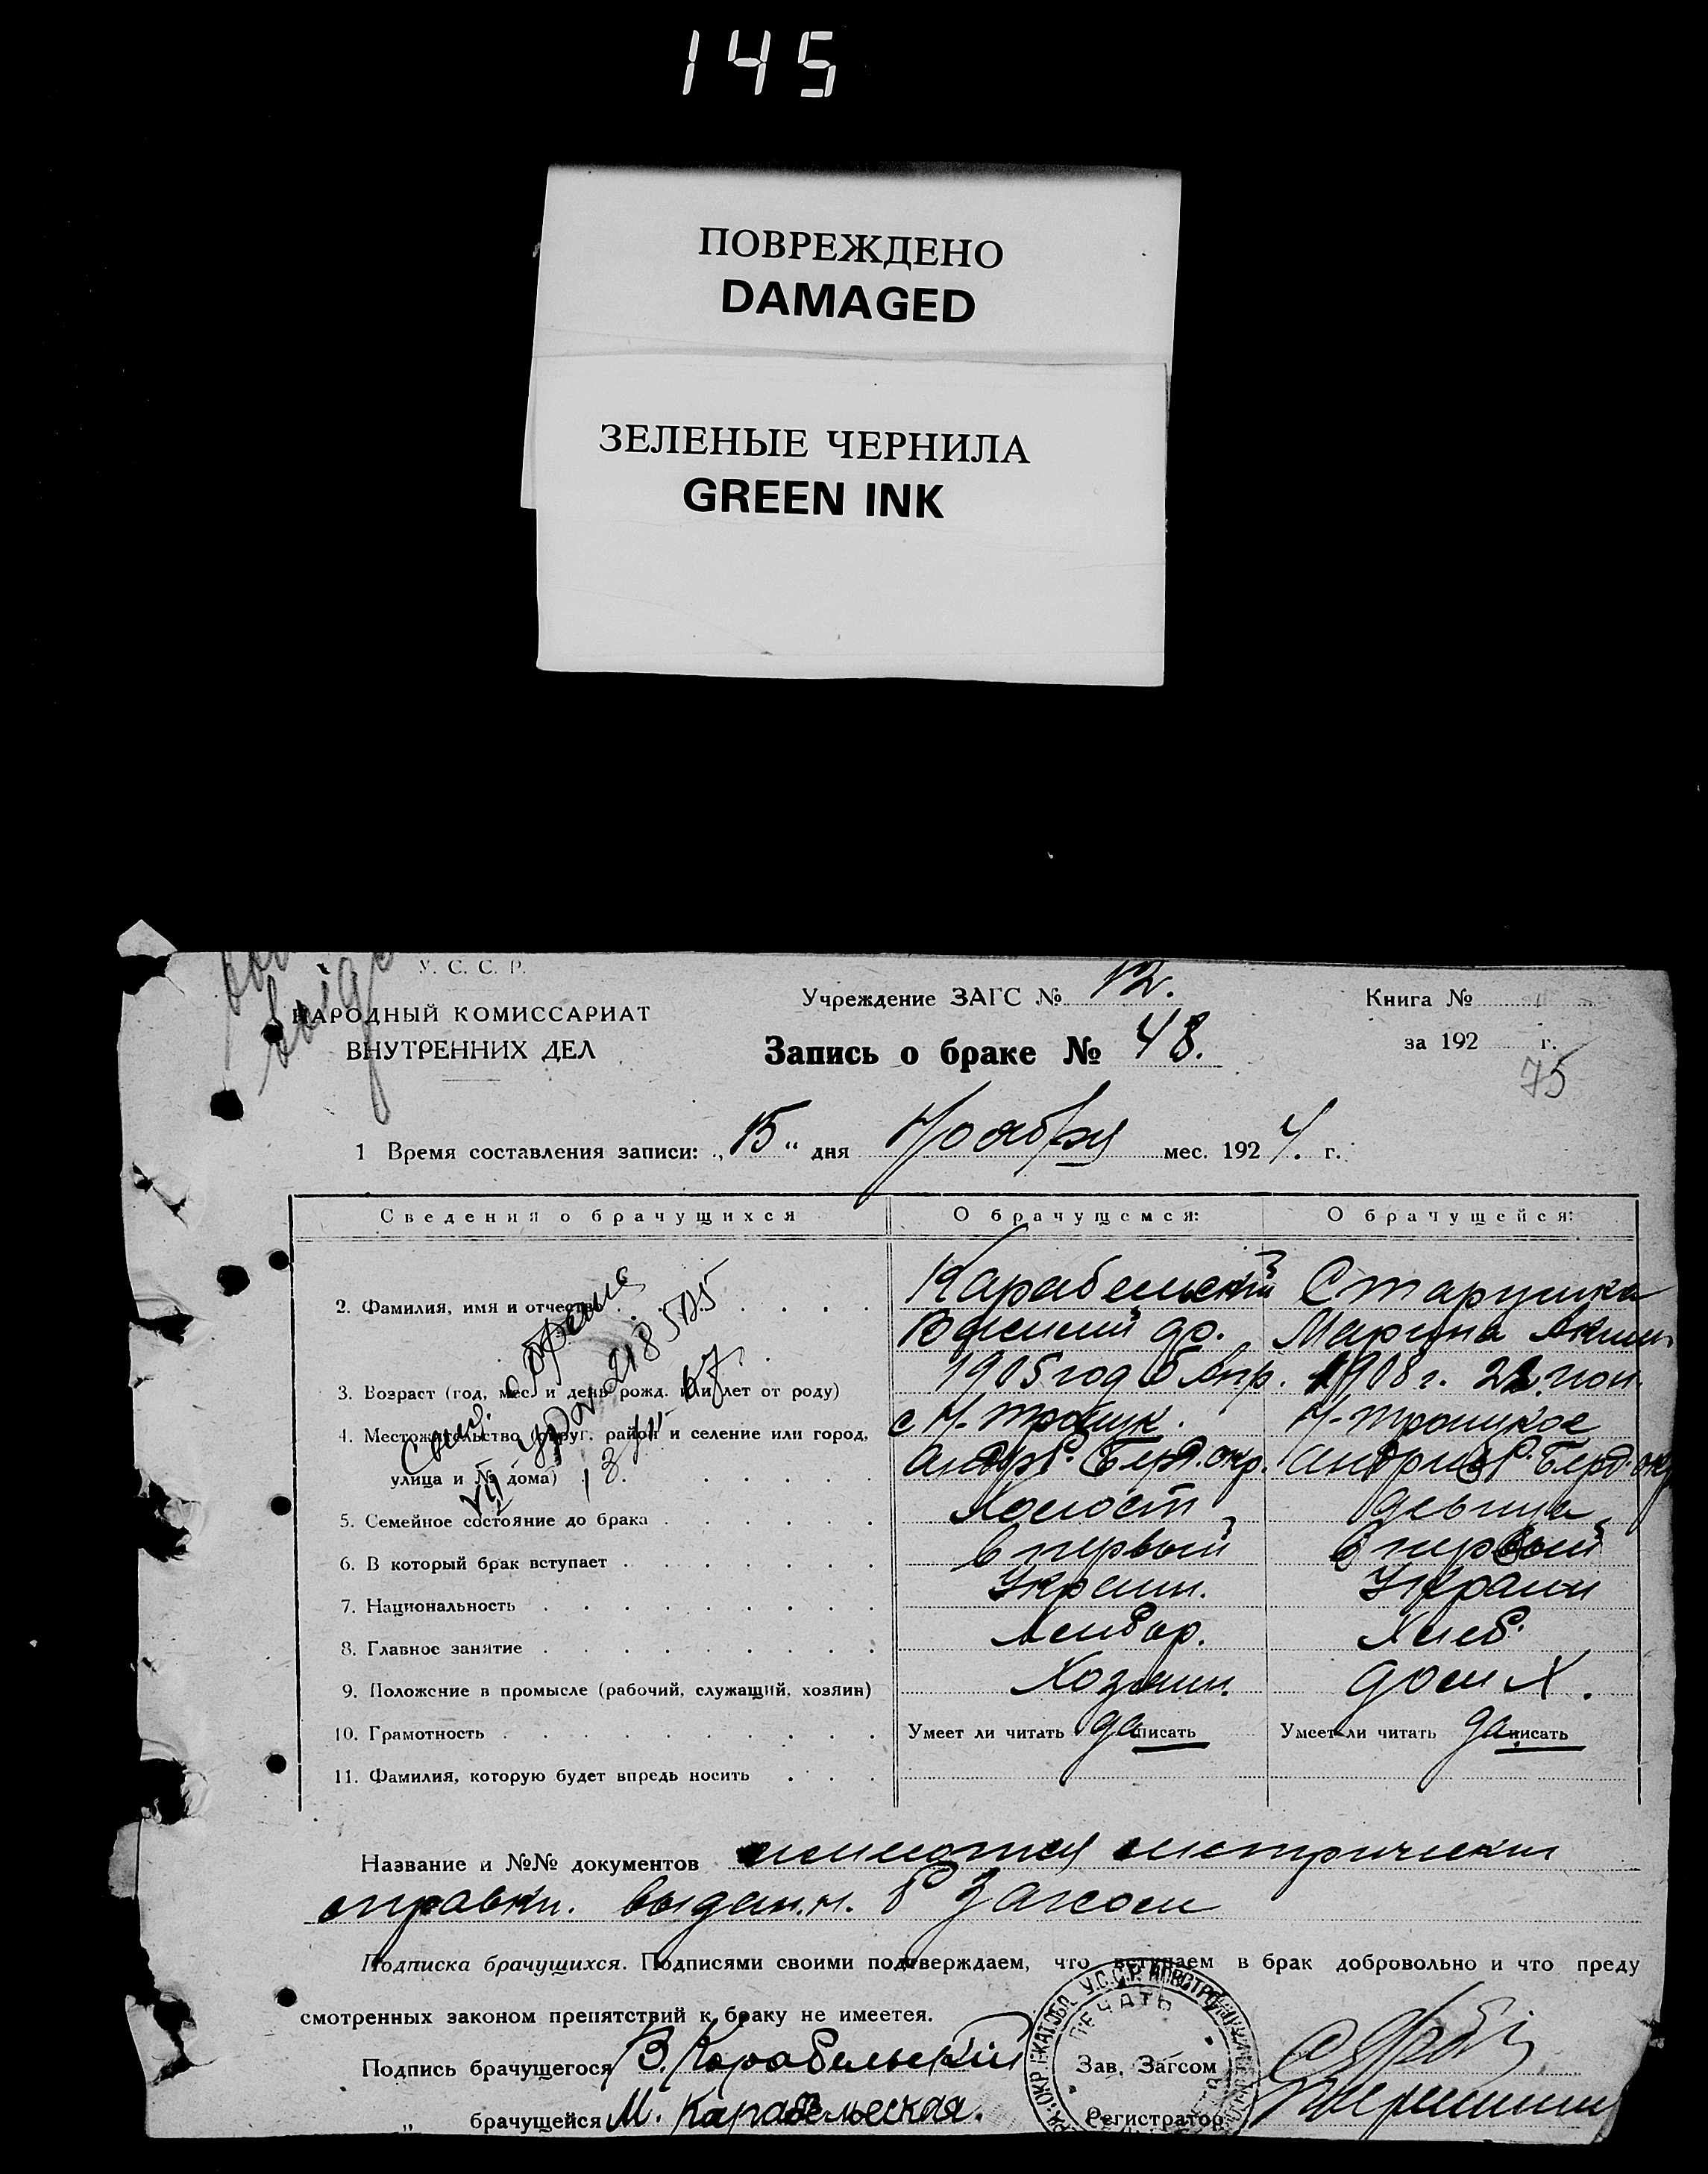 145
ПОВРЕЖДЕНО
DAMAGED
ЗЕЛЕНЫЕ ЧЕРНИЛА
GREEN INK
У. С. С. Р.
НАРОДНЫЙ КОМИССАРИАТ
ВНУТРЕННИХ ДЕЛ
Учреждение ЗАГС № 12.
Книга №
Запись о браке № 48.
за 192 г.
75
1 Время составления записи: „15“ дня Ноября мес. 1924. г.
Сведения о брачущихся О брачущемся: О брачущейся:
2. Фамилия, имя и отчество Карабельский Старушка
др. Марина Аким.
3. Возраст (год, мес. и день рожд. или лет от роду) 1905 год 6 Апр. 1908 г. 22 июн.
4. Местожительство (округ, район и селение или город, с Н-Троицк. Н-Троицкое
улица и № дома) Андр. Берд. окр. Андриев. Берд. окр
5. Семейное состояние до брака Холост девица
6. В который брак вступает в первый в первый
7. Национальность Украин. Украин
8. Главное занятие Хлеб.
9. Положение в промысле (рабочий, служащий, хозяин) Хозяин. дом Х.
10. Грамотность Умеет ли читать да писать Умеет ли читать да писать
11. Фамилия, которую будет впредь носить
Название и №№ документов имеются метрически
справки. выдан.н. Загсом
Подписка брачущихся. Подписями своими подтверждаем, что вступаем в брак добровольно и что преду
смотренных законом препятствий к браку не имеется.
Подпись брачущегося В. Корабельский Зав. Загсом
„ брачущейся М. Карабельеская. Регистратор
ПЕЧАТЬ